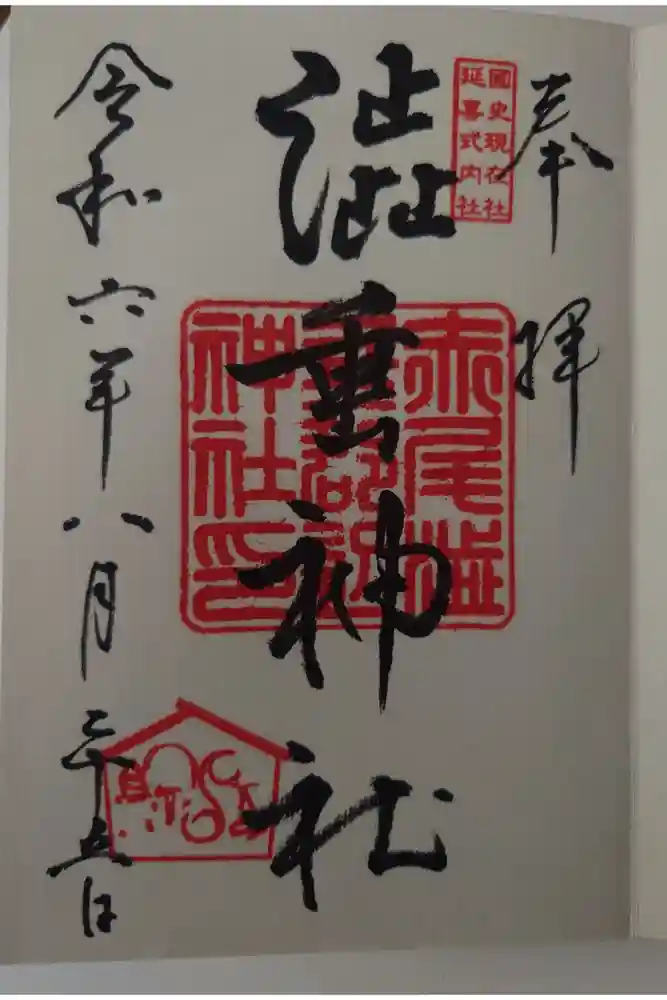 奉拝
國史現在社
延喜式内社
澁垂神社
赤尾澁
神社印
令和六年八月二十五日